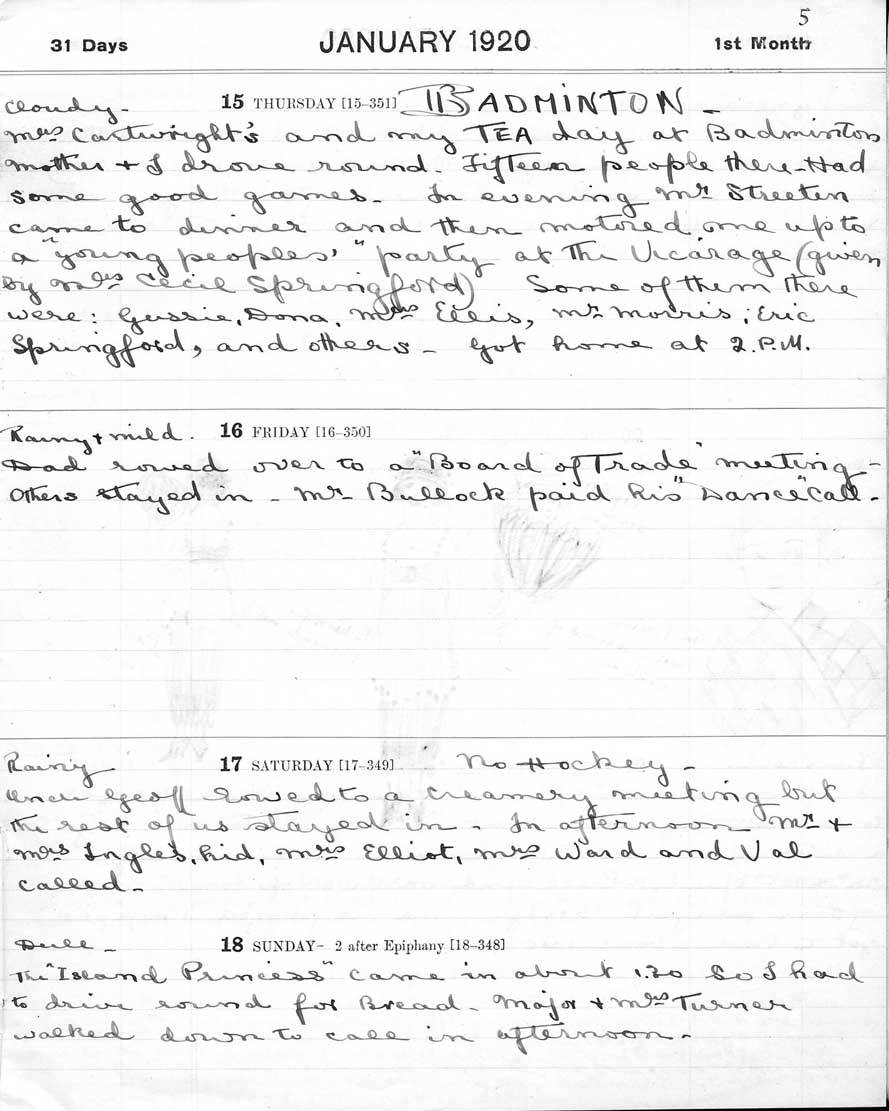 5
31 Days JANUARY 1920 1st Month
Cloudy - 15 THURSDAY [15-351] BADMINTON -
Mrs Cartwright's and my TEA day at Badminton
Mother & I drove round. Fifteen people there - Had
some good games. In evening Mr Streeten
came to dinner and then motored me up to
a "young peoples'" party at the Vicarage (given
by Mrs Cecil Springford) Some of them there
were: Gussie, Dona, Mrs Ellis, Mr Morris, Eric
Springford, and others - Got home at 2. P.M.
Rainy & mild. 16 FRIDAY [16-350]
Dad rowed over to a "Board of Trade" meeting -
Others stayed in - Mr Bullock paid his "Dance" Call -
Rainy 17 SATURDAY [17-349] No Hockey -
Uncle Geoff rowed to a creamery meeting but
the rest of us stayed in. In afternoon Mr &
Mrs Ingles, kid, Mrs Elliot, Mrs Ward and Val
called -
Dull - 18 SUNDAY- 2 after Epiphany [18-348]
The "Island Princess" came in about 1.30 So I had
to drive round for Bread - Major & Mrs Turner
walked down to call in afternoon -